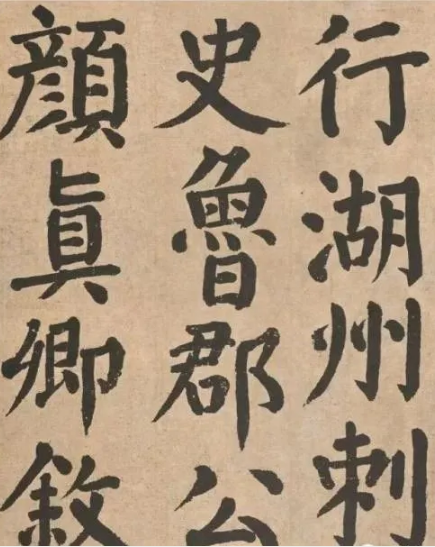 行湖州刺
史魯郡公
顔眞卿敘